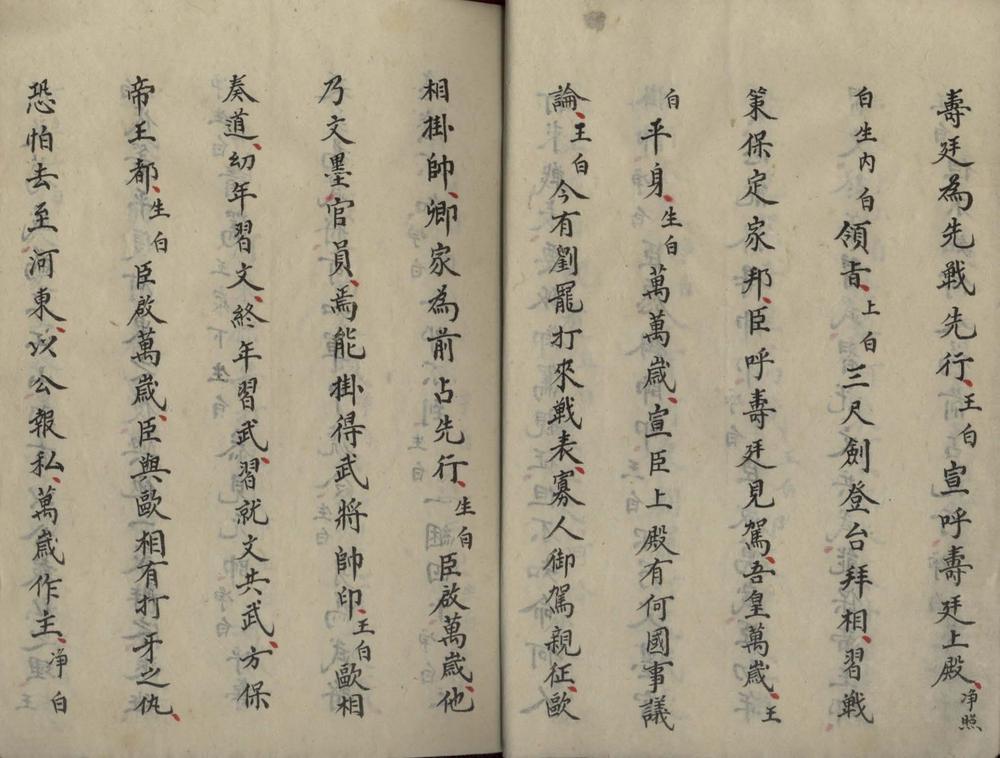 壽廷為先戰先行、王白宣呼壽廷上殿、净照
白生內白領旨、上白三尺劍登台拜相、習戰
策保定家邦、臣呼壽廷見駕、吾皇萬歲、王
白平身、生白萬萬歲、宣臣上殿有何國事議
論、王白今有劉龍打來戰表、寡人御駕親征、歐
相掛帥、卿家為前占先行、生白臣啟萬歲、他
乃文墨官員、焉能掛得武將帥印、王白歐相
奏道、幼年習文、終年習武、習就文共武、方保
帝王都、生白臣啟萬歲、臣與歐相有打牙之仇、
恐怕去至河東、以公報私、萬歲作主、净白